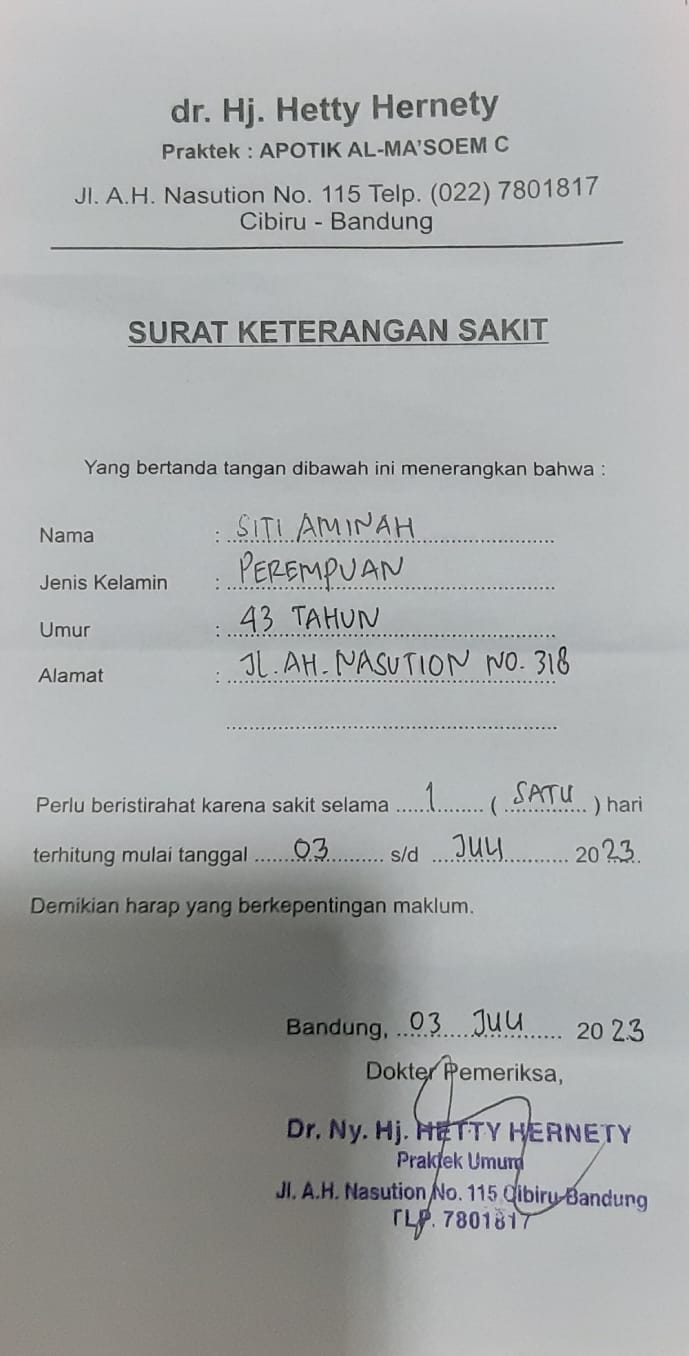 dr. Hj. Hetty Hernety
Praktek : APOTIK AL-MA'SOEM C
Jl. A.H. Nasution No. 115 Telp. (022) 7801817
Cibiru - Bandung
SURAT KETERANGAN SAKIT
Yang bertanda tangan dibawah ini menerangkan bahwa :
Nama : SITI AMINAH
Jenis Kelamin : PEREMPUAN
Umur : 43 TAHUN
Alamat : JL. AH. NASUTION NO. 318
Perlu beristirahat karena sakit selama 1 ( SATU ) hari
terhitung mulai tanggal 03 s/d JULI 2023.
Demikian harap yang berkepentingan maklum.
Bandung, 03 JULI 2023
Dokter Pemeriksa,
Dr. Ny. Hj. HETTY HERNETY
Praktek Umum
Jl. A.H. Nasution No. 115 Cibiru-Bandung
TLP. 7801817